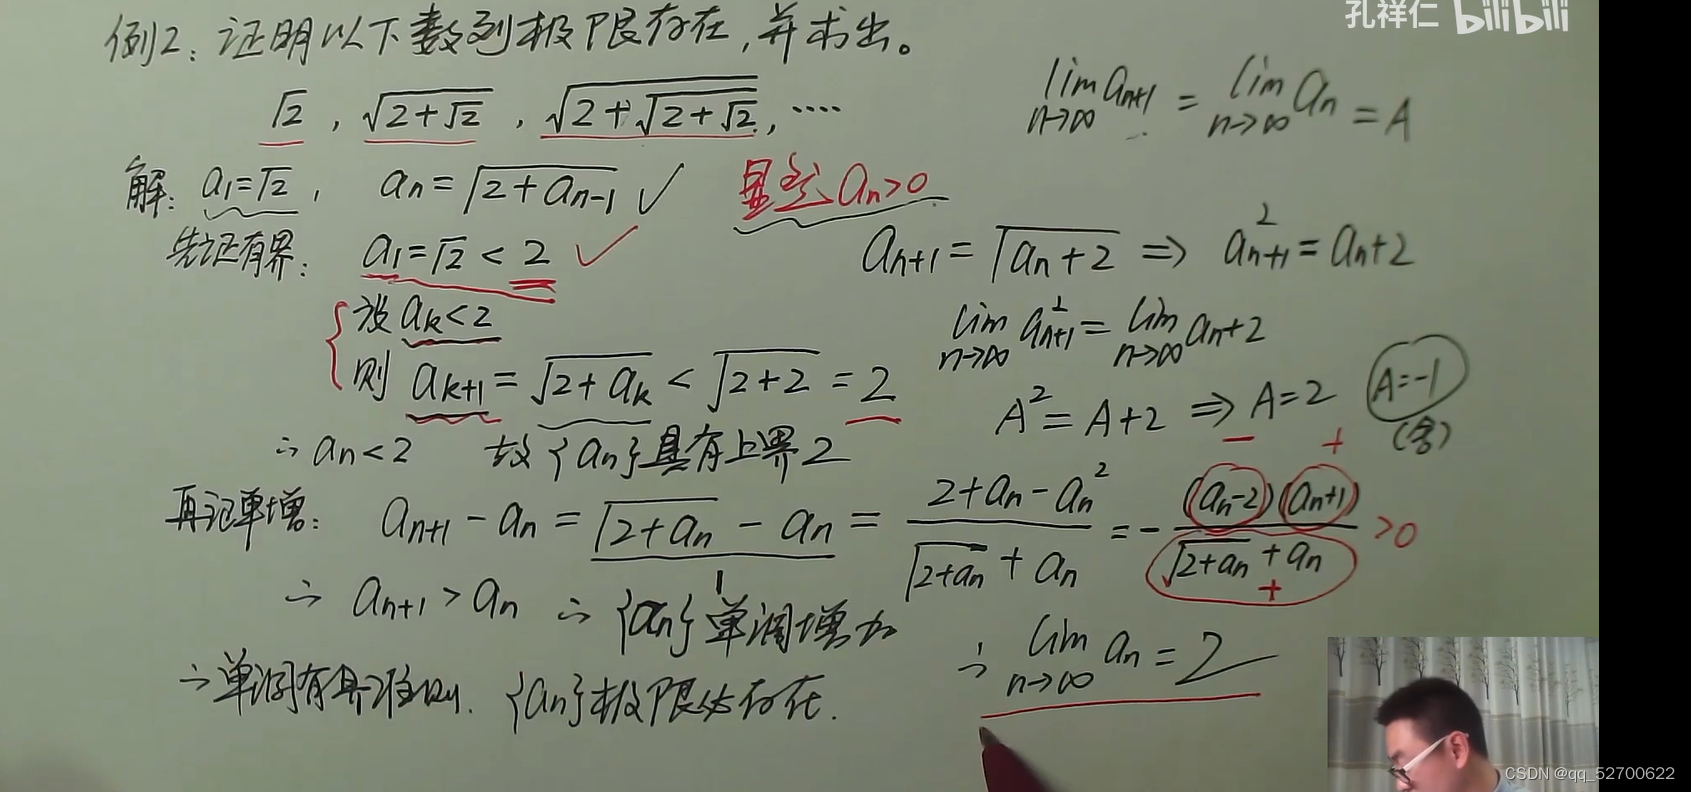 孔祥仁 bilibili
例2：证明以下数列极限存在，并求出。
√2 , √(2+√2) , √(2+√(2+√2)) , ····
lim n→∞ aₙ₊₁ = lim n→∞ aₙ = A
解：a₁=√2 , aₙ=√(2+aₙ₋₁) ✓ 显然 aₙ>0
先证有界：a₁=√2<2 ✓
设 aₖ<2
则 aₖ₊₁=√(2+aₖ)<√(2+2)=2
∴ aₙ<2 故{aₙ}具有上界2
aₙ₊₁=√(aₙ+2) ⇒ aₙ₊₁²=aₙ+2
lim n→∞ aₙ₊₁² = lim n→∞ aₙ+2
A²=A+2 ⇒ A=2 A=-1
(舍)
再证单增：aₙ₊₁-aₙ=√(2+aₙ)-aₙ=(2+aₙ-aₙ²)/(√(2+aₙ)+aₙ)=-(aₙ-2)(aₙ+1)/(√(2+aₙ)+aₙ)>0
- +
+
1
∴ aₙ₊₁>aₙ ∴ {aₙ}单调增加
∴单调有界准则. {aₙ}极限必存在.
∴ lim n→∞ aₙ=2
CSDN @qq_52700622